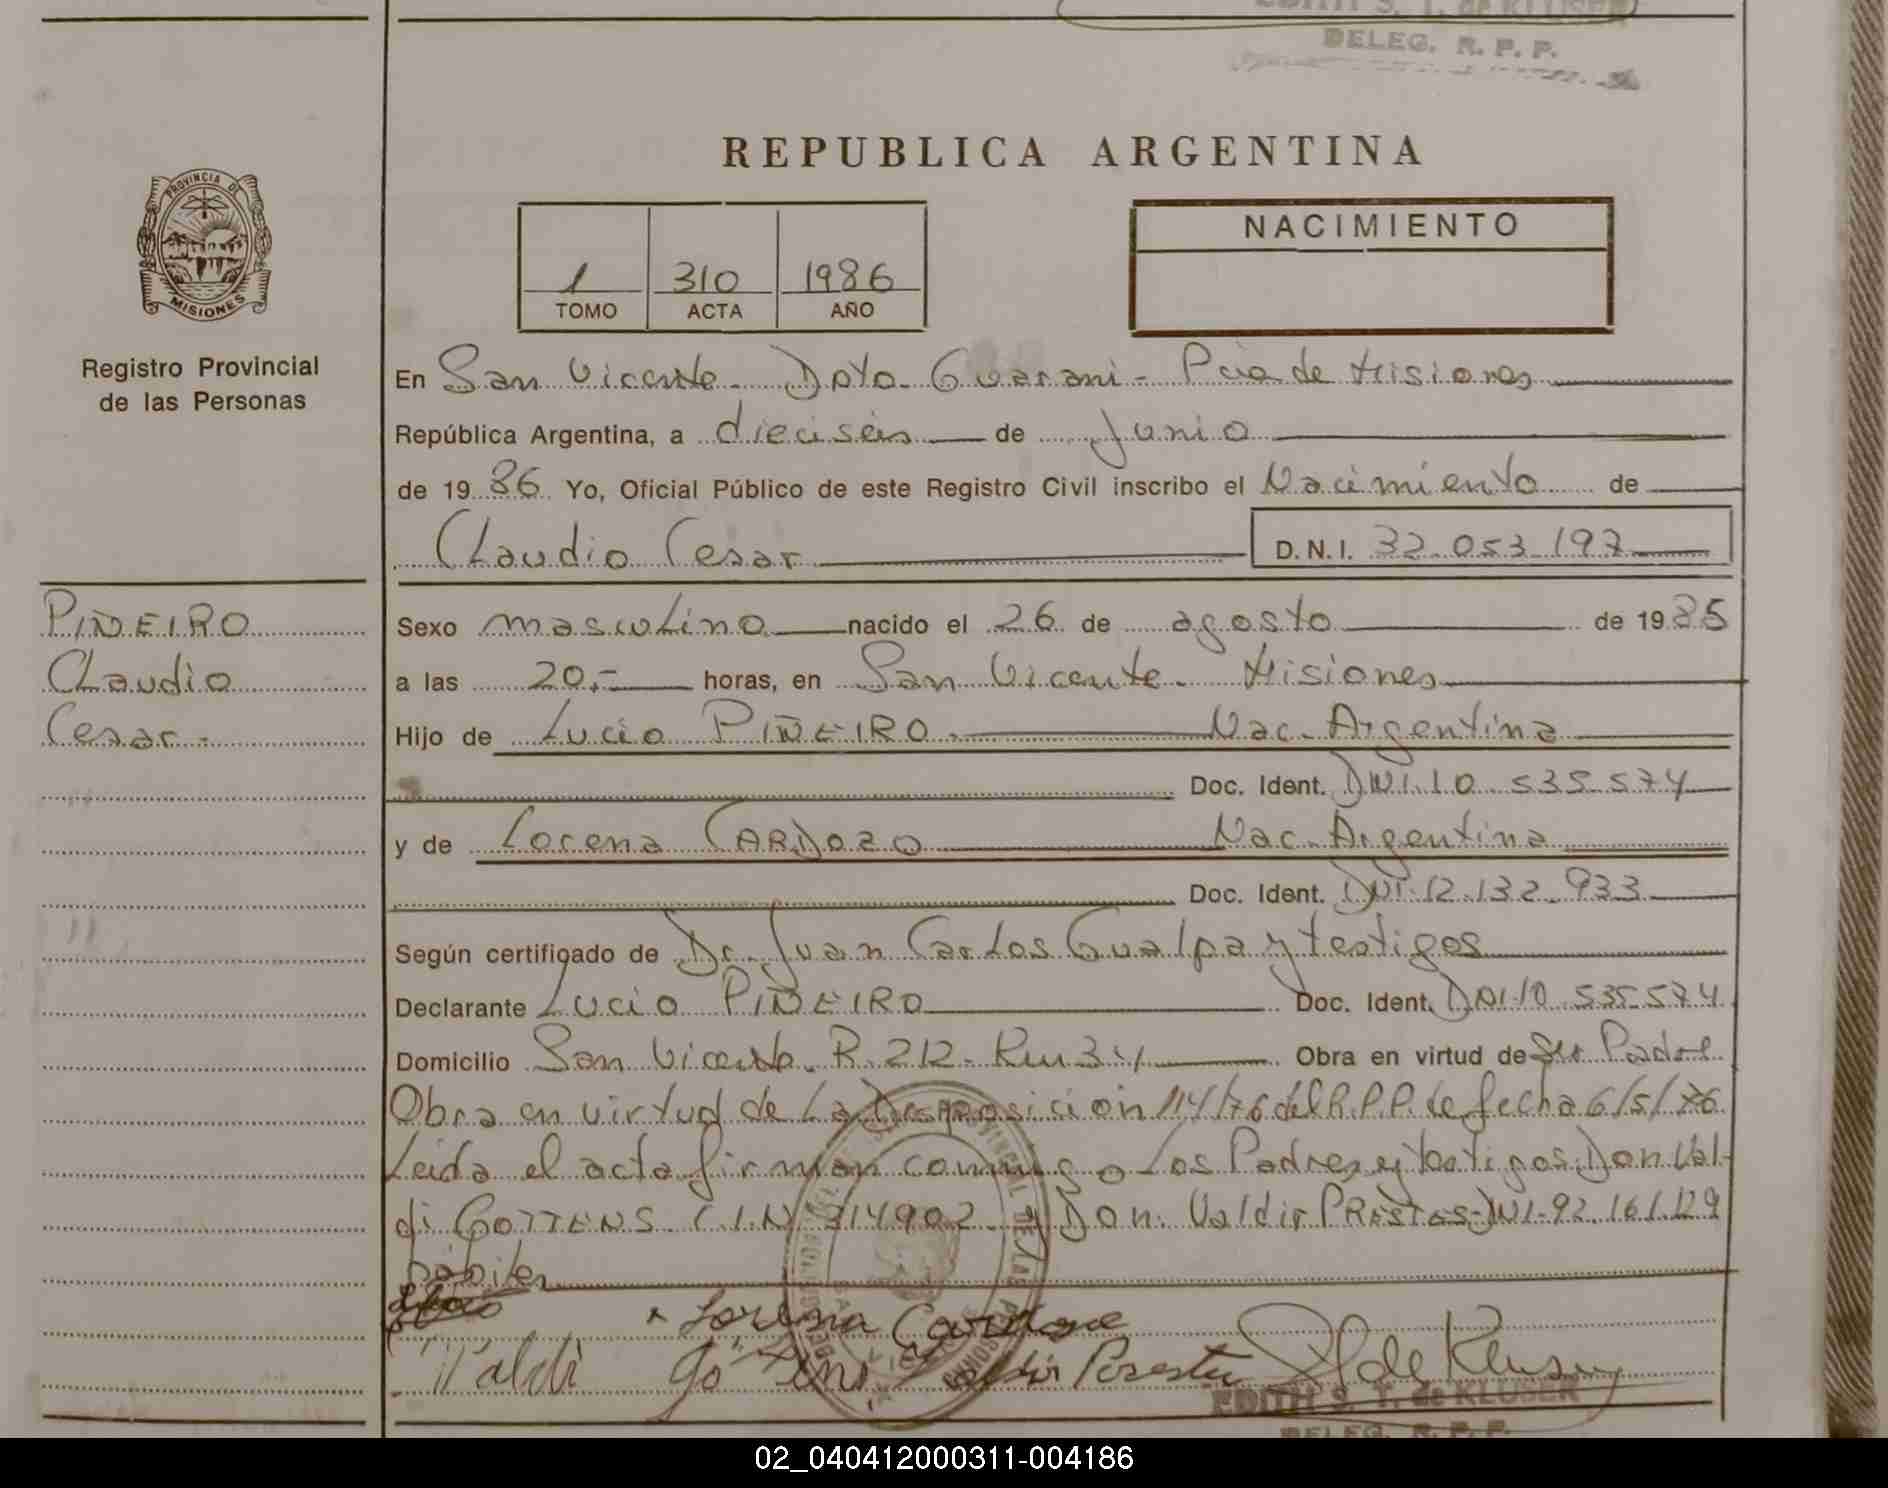 EDITH S. T. de KLUSER
DELEG. R. P. P.
REPUBLICA ARGENTINA
PROVINCIA DE
MISIONES
NACIMIENTO
1 310 1986
TOMO ACTA AÑO
Registro Provincial
de las Personas
En San Vicente. Dpto. Guarani - Pcia de Misiones
República Argentina, a dieciséis de Junio
de 1986 Yo, Oficial Público de este Registro Civil inscribo el Nacimiento de
Claudio Cesar D.N.I. 32.053.197
PIÑEIRO
Claudio
Cesar.-
Sexo masculino nacido el 26 de agosto de 1985
a las 20.- horas, en San Vicente. Misiones
Hijo de Lucio PIÑEIRO. Nac. Argentina
Doc. Ident. DNI.10.535.574
y de Lorena CARDOZO Nac. Argentina
Doc. Ident. DNI.12.132.933
Según certificado de Dr. Juan Carlos Gualpa y testigos
Declarante Lucio PIÑEIRO Doc. Ident. DNI.10.535.574
Domicilio San Vicente. R. 212 - Km 34 Obra en virtud de Ser Padre
Obra en virtud de La Disposición 114/76 del R.P.P. de fecha 6/5/76
Leida el acta firman conmigo Los Padres y testigos Don Val-
di GOTTENS C.I.N 314902 y Don. Valdir PRESTES-DNI-92.161.129
hábiles
Lorena Cardozo
Valdi Gottens Valdir Prestes E de Kluser
EDITH S. T. de KLUSER
DELEG. R. P. P.
02_040412000311-004186